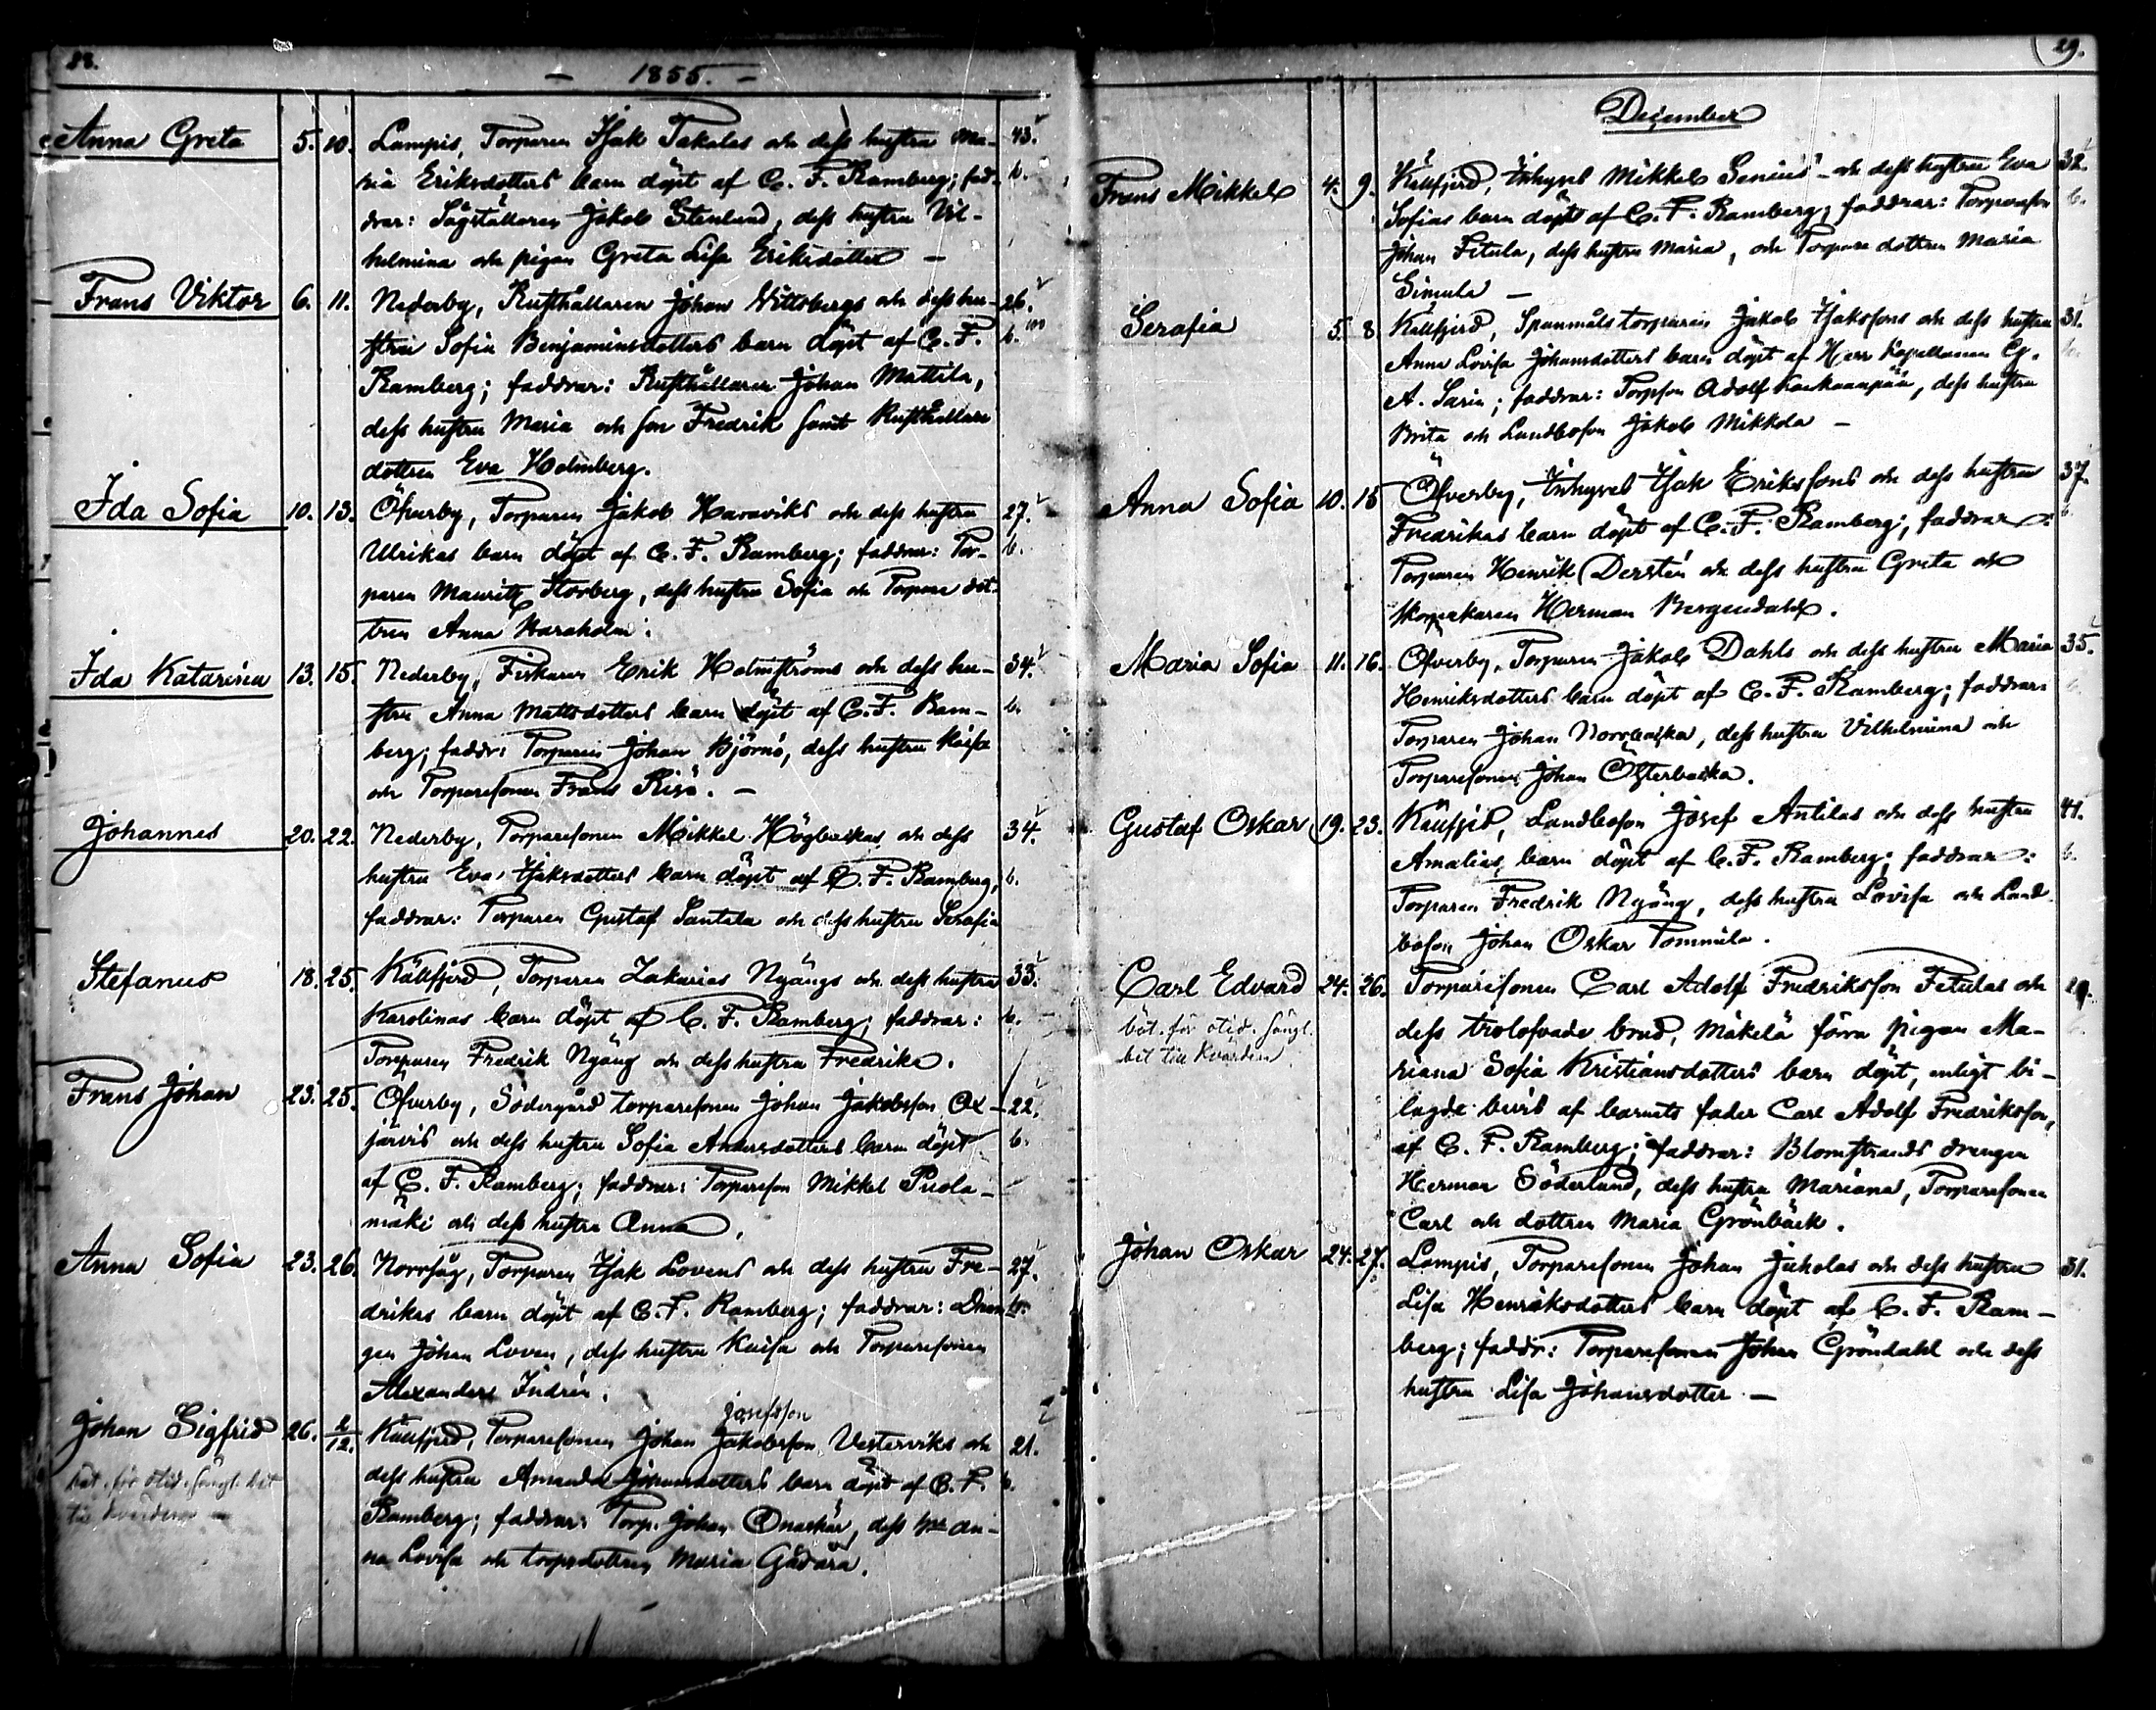 28.
— 1855. —
Anna Greta 5. 10. Lampis, Torparen Isak Takalas och dess hustru Ma- 43.
ria Eriksdotters barn döpt af C. F. Ramberg; fad- b.
drar: Sågställaren Jakob Stenlund, dess hustru Vil-
helmina och pigan Greta Lisa Eriksdotter —
Frans Viktor 6. 11. Nederby, Rusthållaren Johan Wittbergs och dess hu- 26.
stru Sofia Benjaminsdotters barn döpt af C. F. b.
Ramberg; faddrar: Rusthållaren Johan Mattila,
dess hustru Maria och son Fredrik samt Rusthållare
dottren Eva Holmberg.
Ida Sofia 10. 13. Öfverby, Torparen Jakob Haraviks och dess hustru 27.
Ulrikas barn döpt af C. F. Ramberg; faddrar: Tor- b.
paren Mauritz Storberg, dess hustru Sofia och Torpare dot-
tren Anna Haraholm.
Ida Katarina 13. 15. Nederby, Fiskaren Erik Holmströms och dess hu- 34.
stru Anna Mattsdotters barn döpt af C. F. Ram- b.
berg; faddr: Torparen Johan Björnö, dess hustru Kaisa
och Torparesonen Frans Risö. —
Johannes 20. 22. Nederby, Torparesonen Mikkel Högbackas och dess 34.
hustru Eva Isaksdotters barn döpt af C. F. Ramberg, b.
faddrar: Torparen Gustaf Santala och dess hustru Serafia
Stefanus 18. 25. Källfjerd, Torparen Zakarias Nyängs och dess hustru 33.
Karolinas barn döpt af C. F. Ramberg; faddrar: b.
Torparen Fredrik Nyäng och dess hustru Fredrika.
Frans Johan 23. 25. Öfverby, Södergård torparesonen Johan Jakobsson Ox- 22.
järvis och dess hustru Sofia Andersdotters barn döpt b.
af C. F. Ramberg; faddrar: Torpareson Mikkel Puola-
mäki och dess hustru Anna.
Anna Sofia 23. 26. Norrsåg, Torparen Isak Lovens och dess hustru Fre- 27.
drikas barn döpt af C. F. Ramberg; faddrar: Dren- b.
gen Johan Loven, dess hustru Kaisa och Torparesonen
Alexander Indrén.
Josefsson
Johan Sigfrid 26. 2/12. Källfjerd, Torparesonen Johan Jakobsson Vesterviks och 21.
böt. för otid. sängl. bet dess hustru Amanda Johansdotters barn döpt af C. F. b.
till Kvarden Ramberg; faddrar: Torp. Johan Onaskär, dess h:u An-
na Lovisa och torpredottren Maria Gådåra.
29.
December
Frans Mikkel 4. 9. Källfjerd, Inhyses Mikkel Senius och dess hustru Eva 32.
Sofias barn döpt af C. F. Ramberg; faddrar: Torpareson b.
Johan Fitula, dess hustru Maria, och Torpare dottren Maria
Simula —
Serafia 5. 8. Källfjerd, Spanmåls torparen Jakob Isakssons och dess hustru 31.
Anna Lovisa Johansdotters barn döpt af Herr Kapellanen G.
A. Sarin; faddrar: Torpson Adolf Kaskaanpää, dess hustru
Brita och Landboson Jakob Mikkola —
Anna Sofia 10. 15 Öfverby, Inhyses Isak Erikssons och dess hustru 37.
Fredrikas barn döpt af C. F. Ramberg; faddrar: b.
Torparen Henrik Derstén och dess hustru Greta och
skomakaren Herman Bergendahl.
Maria Sofia 11. 16. Öfverby, Torparen Jakob Dahls och dess hustru Maria 35.
Henriksdotters barn döpt af C. F. Ramberg; faddrar:
Torparen Johan Norrbacka, dess hustru Vilhelmina och
Torparesonen Johan Österbacka.
Gustaf Oskar 19. 23. Källfjerd, Landboson Josef Antilas och dess hustru 41.
Amalias barn döpt af C. F. Ramberg; faddrar: b.
Torparen Fredrik Nyäng, dess hustru Lovisa och Land-
boson Johan Oskar Pommila.
Carl Edvard 24. 26. Torparesonen Carl Adolf Fredriksson Fitulas och 29.
böt. för otid. sängl. dess trolofvade brud, Mäkelä förra pigan Ma-
bet till Kvarden riana Sofia Kristiansdotters barn döpt, enligt bi-
lagde bevis af barnets fader Carl Adolf Fredriksson,
af C. F. Ramberg; faddrar: Blomstrands drengen
Herman Söderlund, dess hustru Mariana, Torparesonen
Carl och dottren Maria Grönbäck.
Johan Oskar 24. 27. Lampis, Torparesonen Johan Juholas och dess hustru 31.
Lisa Henriksdotters barn döpt af C. F. Ram-
berg; faddr: Torparesonen Johan Gröndahl och dess
hustru Lisa Johansdotter —